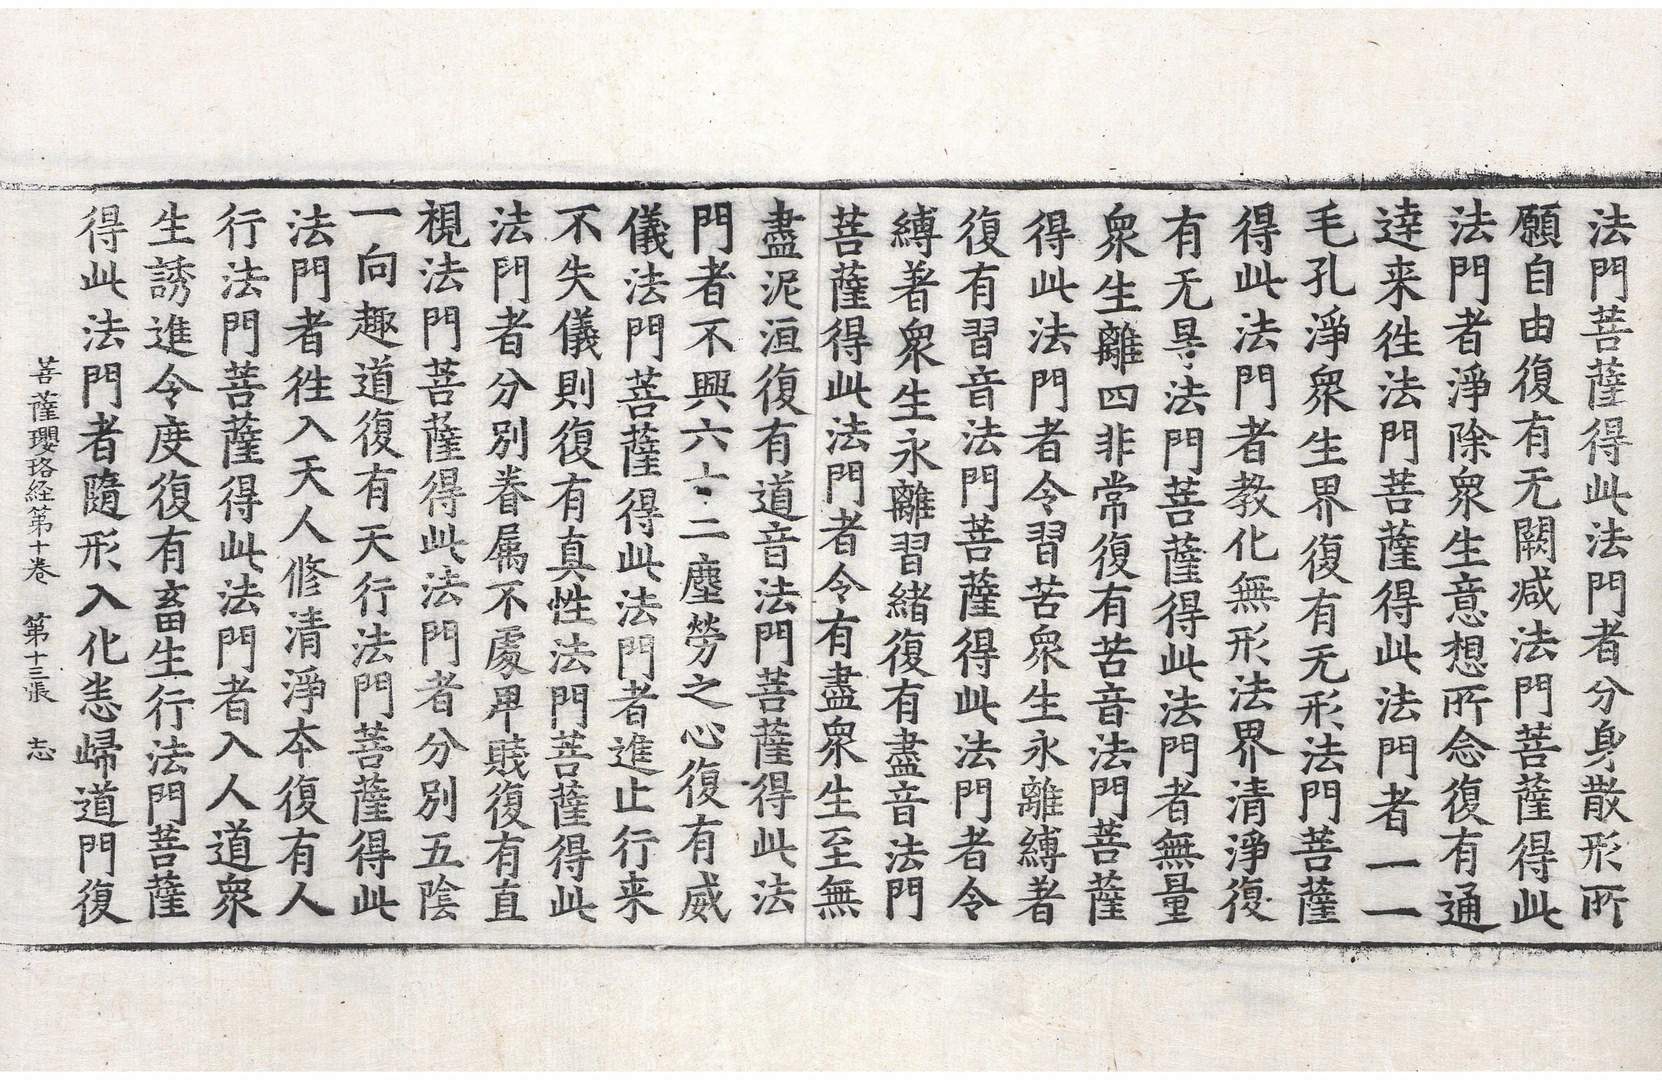 法門菩薩得此法門者分身散形所
願自由復有无闕减法門菩薩得此
法門者淨除衆生意想所念復有通
達来徃法門菩薩得此法門者一一
毛孔淨衆生界復有无形法門菩薩
得此法門者教化無形法界清淨復
有无㝵法門菩薩得此法門者無量
衆生離四非常復有苦音法門菩薩
得此法門者令習苦衆生永離縛著
復有習音法門菩薩得此法門者令
縛著衆生永離習緒復有盡音法門
菩薩得此法門者令有盡衆生至無
盡泥洹復有道音法門菩薩得此法
門者不興六十二塵勞之心復有威
儀法門菩薩得此法門者進止行来
不失儀則復有真性法門菩薩得此
法門者分別眷属不處卑賤復有直
視法門菩薩得此法門者分別五陰
一向趣道復有天行法門菩薩得此
法門者徃入天人修清淨夲復有人
行法門菩薩得此法門者入人道衆
生誘進令度復有畜生行法門菩薩
得此法門者隨形入化恚歸道門復
菩薩瓔珞経第十卷　第十三張　志